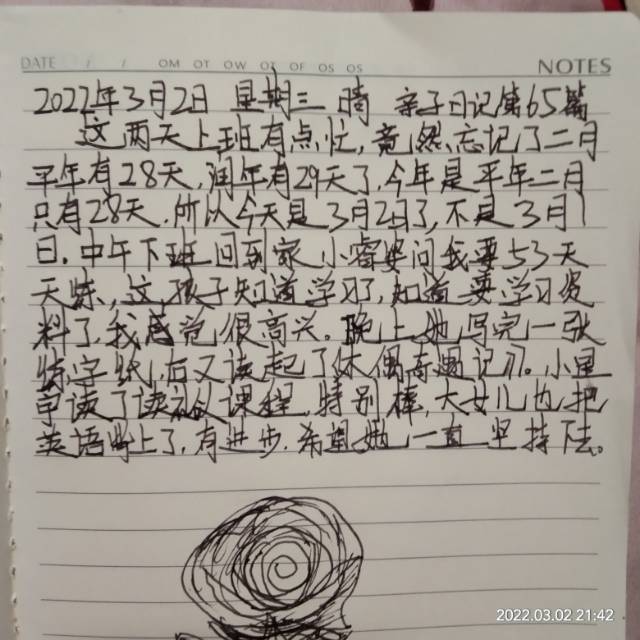 DATE / / OM OT OW OT OF OS OS NOTES
2022年3月2日 星期三 晴 亲子日记第65篇
这两天上班有点忙,竟然忘记了二月
平年有28天,润年有29天了,今年是平年二月
只有28天.所以今天是3月2日了,不是3月1
日.中午下班回到家小睿婆问我要53天
天练,这孩子知道学习了,知道要学习资
料了,我感觉很高兴。晚上她写完一张
练字纸,后又读起了木偶奇遇记了。小星
早读了读课程,特别棒,大女儿也把
英语听上了,有进步.希望她一直坚持下去。
2022.03.02 21:42